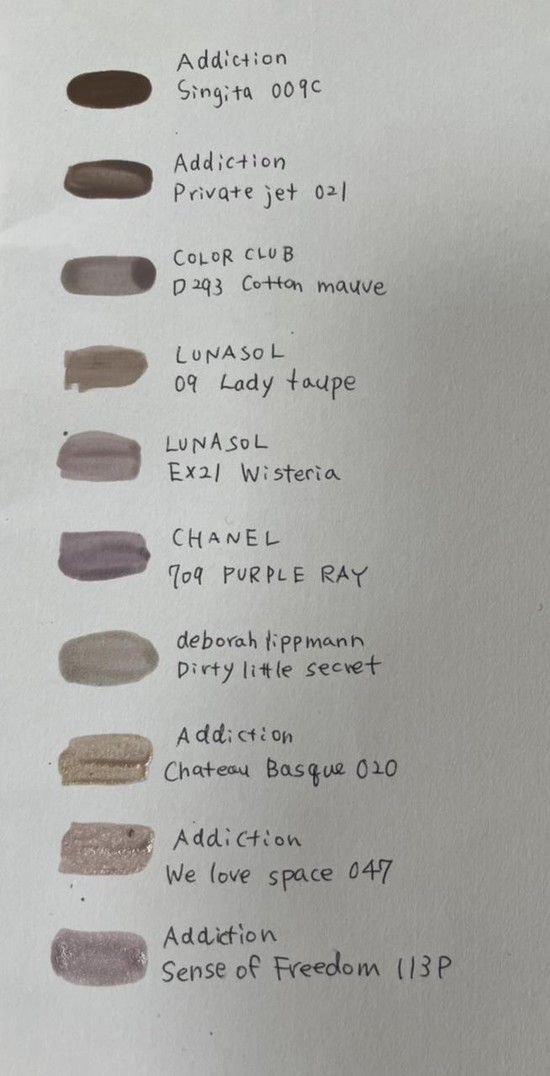 Addiction
Singita 009C
Addiction
Private jet 021
COLOR CLUB
D293 Cotton mauve
LUNASOL
09 Lady taupe
LUNASOL
EX21 Wisteria
CHANEL
709 PURPLE RAY
deborah lippmann
Dirty little secret
Addiction
Chateau Basque 020
Addiction
We love space 047
Addiction
Sense of Freedom 113P